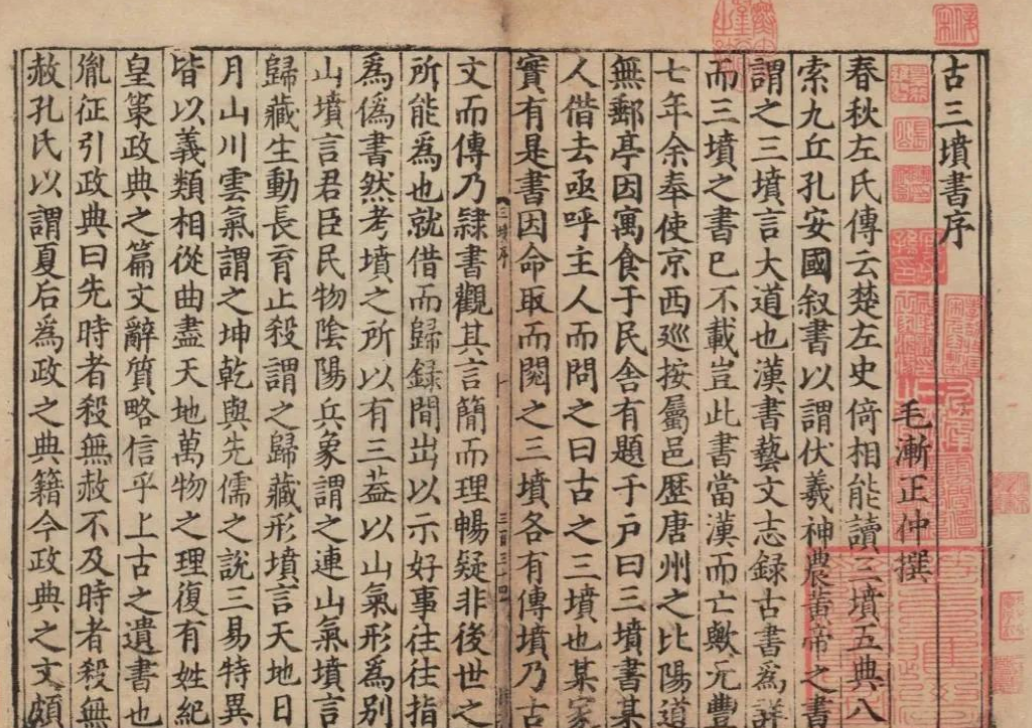 古三墳書序
毛漸正仲撰
春秋左氏傳云楚左史倚相能讀三墳五典八
索九丘孔安國叙書以謂伏羲神農黃帝之書
謂之三墳言大道也漢書藝文志錄古書爲詳
而三墳之書已不載豈此書當漢而亡歟元豐
七年余奉使京西巡按屬邑歷唐州之比陽道
無郵亭因寓食于民舍有題于户曰三墳書某
人借去亟呼主人而問之曰古之三墳也某家
實有是書因命取而閱之三墳各有傳墳乃古
三墳序
文而傳乃隸書觀其言簡而理暢疑非後世之
所能爲也就借而歸録間出以示好事往往指
爲僞書然考墳之所以有三葢以山氣形爲別
山墳言君臣民物陰陽兵象謂之連山氣墳言
歸藏生動長育止殺謂之歸藏形墳言天地日
月山川雲氣謂之坤乾與先儒之説三易特異
皆以義類相從曲盡天地萬物之理復有姓紀
皇策政典之篇文辭質略信乎上古之遺書也
胤征引政典曰先時者殺無赦不及時者殺無
赦孔氏以謂夏后爲政之典籍今政典之文頗